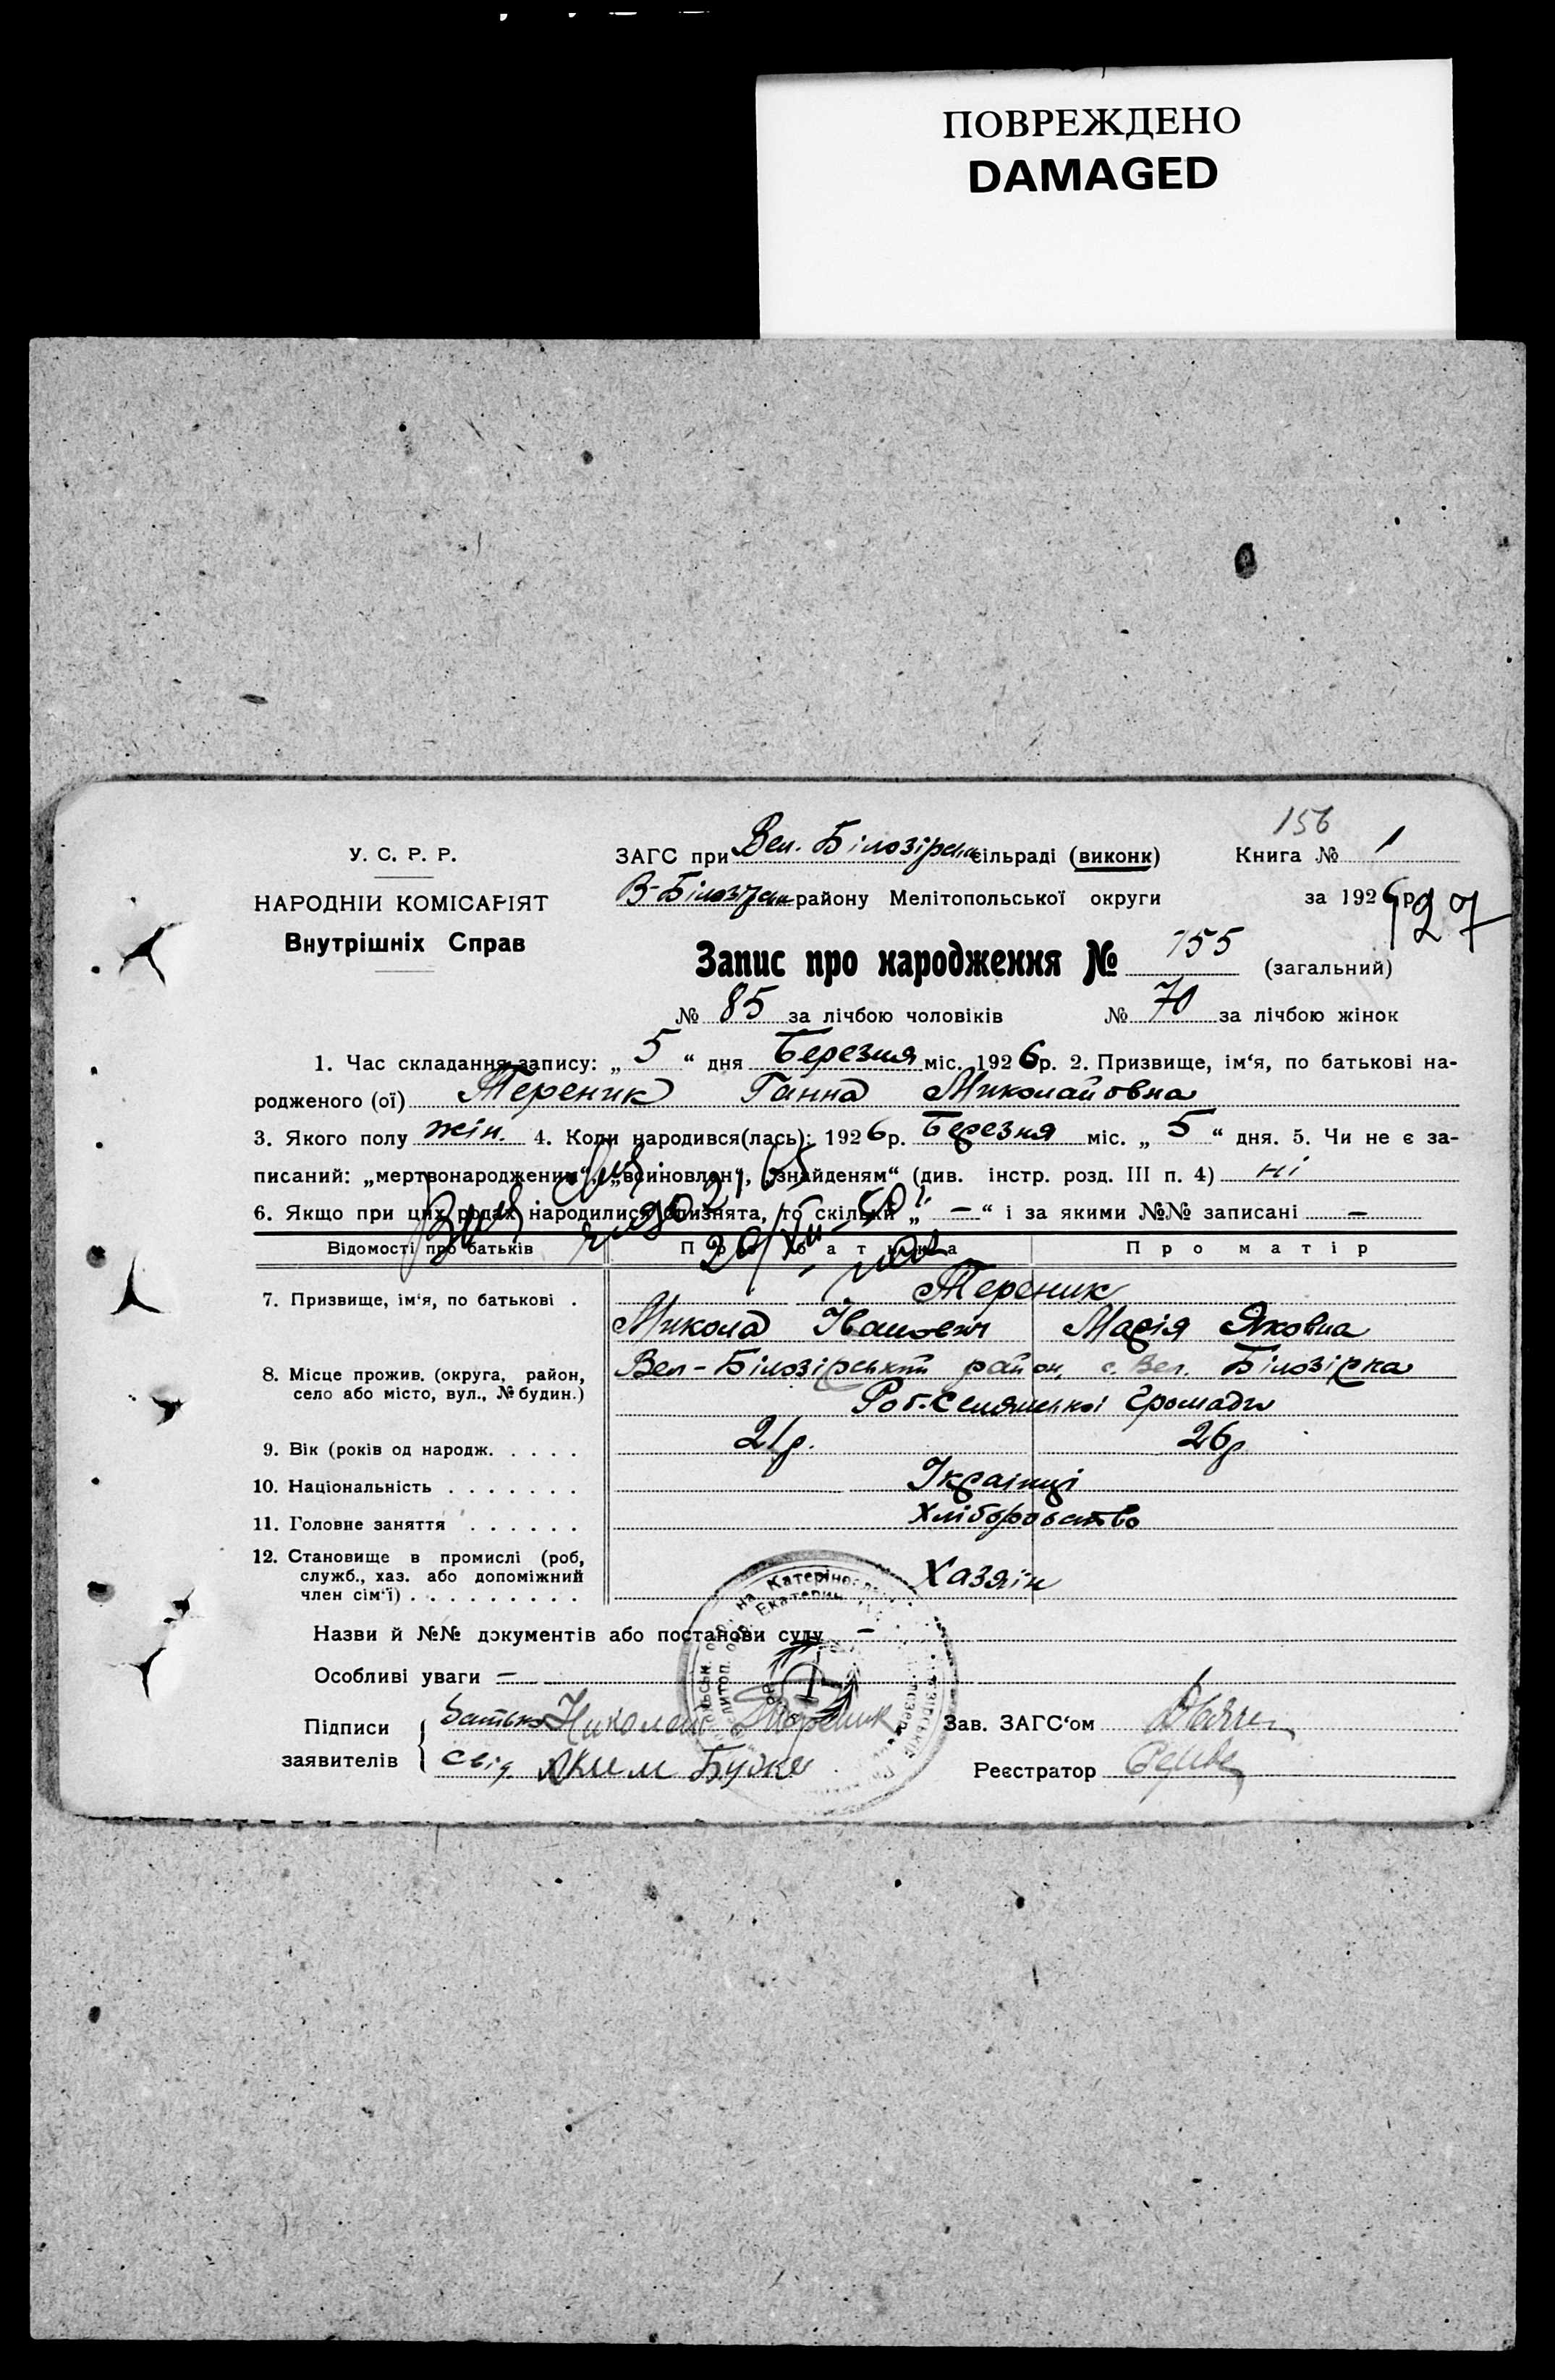 ПОВРЕЖДЕНО
DAMAGED
156
У. С. Р. Р.
НАРОДНІИ КОМІСАРІЯТ
Внутрішніх Справ
ЗАГС при Вел. Білозірськ сільраді (виконк) Книга № 1
В-Білозірськ району Мелітопольської округи за 1926 р.
127
Запис про народження № 155 (загальний)
№ 85 за лічбою чоловіків № 70 за лічбою жінок
1. Час складання запису: „ 5 “ дня Березня міс. 1926 р. 2. Призвище, ім‘я, по батькові на-
родженого (ої) Тереник Ганна Миколайовна
3. Якого полу жін. 4. Коли народився(лась): 1926 р. Березня міс. „ 5 “ дня. 5. Чи не є за-
писаний: „мертвонародженим“, „всиновлен“, „знайденям“ (див. інстр. розд. III п. 4) ні
6. Якщо при цих родах народилися близнята, то скільки „ — “ і за якими №№ записані —
Відомості про батьків Про батька Про матір
7. Призвище, ім‘я, по батькові . Тереник
Микола Іванович Марія Яковна
8. Місце прожив. (округа, район, село або місто, вул., № будин.) Вел-Білозірський район, с. Вел. Білозірка
Роб.-Селянської Громади
9. Вік (років од народж. . . . . 21 р. 26 р
10. Національність . . . . . . . Українці
11. Головне заняття . . . . . . Хліборобство
12. Становище в промислі (роб, служб., хаз. або допоміжний член сім‘ї) . . . . . . . . . . Хазяїн
Назви й №№ документів або постанови суду —
Особливі уваги —
Підписи заявителів { батько Николай Тереник Зав. ЗАГС‘ом
свід. Аким Бучко Реєстратор